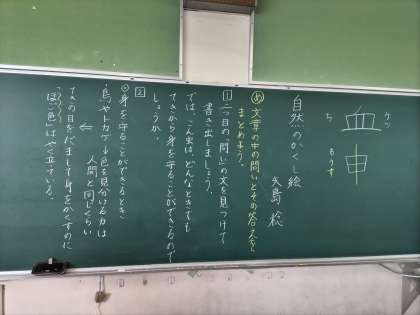 ケツ
血
ち
申
もうす
自然のかくし絵
矢島 稔
め 文章の中の問いとその答えを
まとめよう。
1 二つ目の「問い」の文を見つけて
書き出しましょう。
では、こん虫は、どんなときでも
てきから身を守ることができるので
しょうか。
2
身を守ることができるとき
・鳥やトカゲ→色を見分ける力は
人間と同じくらい
⇐
てきの目をだまして身をかくすのに
「ほご色」はやく立っている。